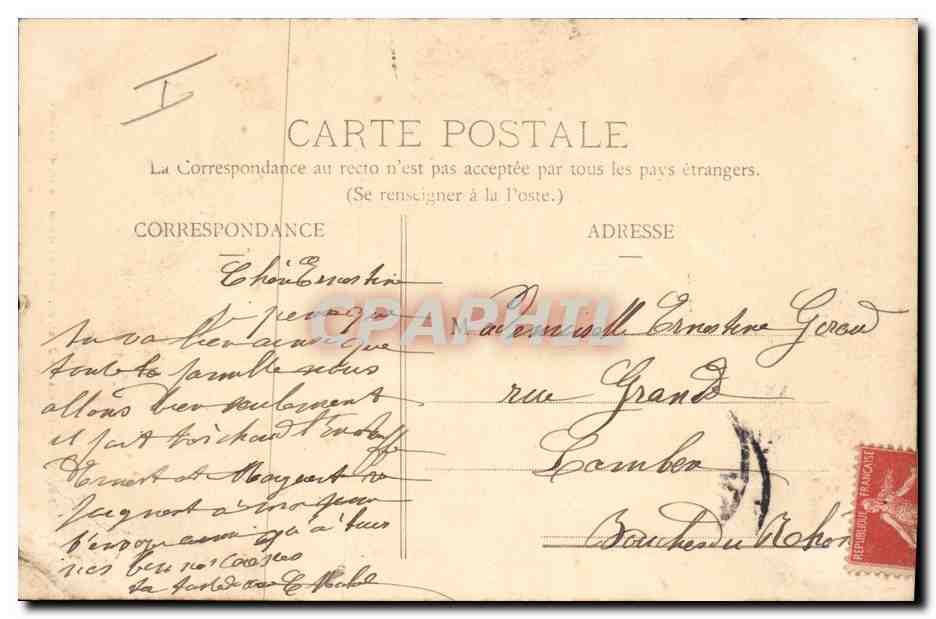 I
CARTE POSTALE
La Correspondance au recto n'est pas acceptée par tous les pays étrangers.
(Se renseigner à la Poste.)
CORRESPONDANCE
Chère Ernestine
je pense que
tu va bien ainsi que
toute la famille nous
allons bien seulement
il fait trop chaud
Ernest et Mayeul se
joignent à moi pour
t'envoyer ainsi qu'à tous
nos
ta
ADRESSE
Mademoiselle Ernestine Giraud
rue Grande
Lambesc
Bouches du Rhône
REPUBLIQUE FRANÇAISE
CPAPHIL